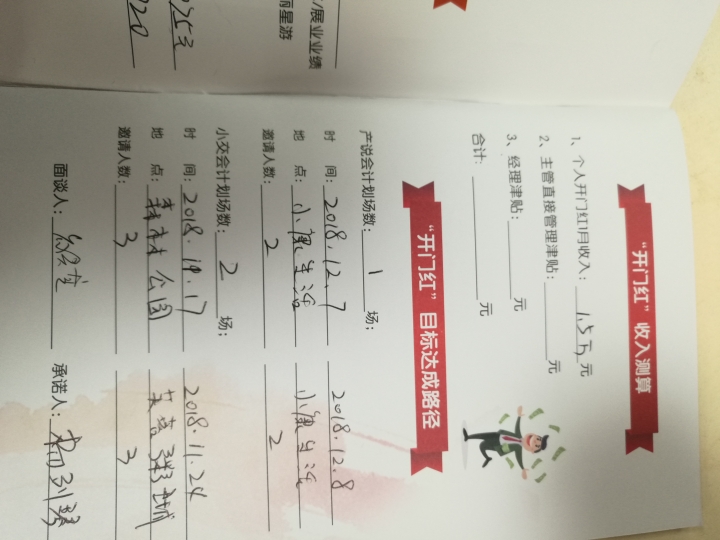 /展业业绩
星游
“开门红”收入测算
1、个人开门红1月收入：1.5万元
2、主管直接管理津贴：元
3、经理津贴：元
合计：元
“开门红”目标达成路径
产说会计划场数：1场；
时 间：2018.12.7 2018.12.8
地 点：小康生活 小康生活
邀请人数：2 2
小交会计划场数：2场；
时 间：2018.11.17 2018.11.24
地 点：森林公园
邀请人数：3 3
面谈人：
承诺人：